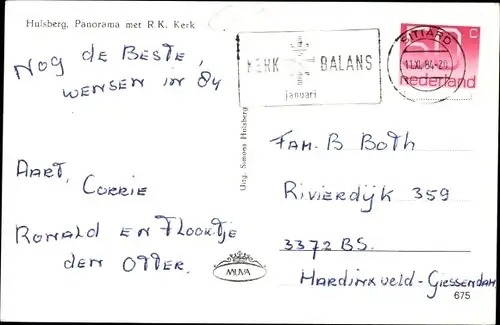 Hulsberg, Panorama met R K. Kerk
Nog de Beste,
wensen in 84
Aart,
Corrie
Ronald en Flooktje
den Otter.
Uitg. Simons Hulsberg
KERK BALANS
januari
SITTARD
c
nederland
Fam. B Both
Rivierdijk 359
3372 BS.
Hardinxveld-Giessendam
MUVA
675